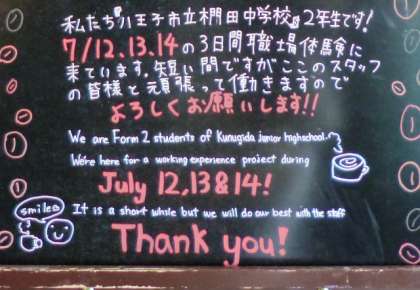 私たち八王子市立椚田中学校2年生です!
7/12.13.14の3日間職場体験に
来ています。短い間ですがここのスタッフ
の皆様と頑張って働きますので
よろしくお願いします!!
We are Form 2 students of Kunugida junior highschool.
We're here for a working experience project during
July 12,13&14!
smile
It is a short while but we will do our best with the staff
Thank you!